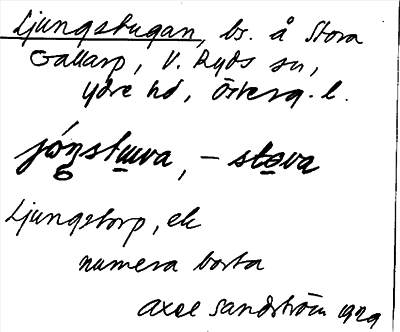 Ljungstugan, bs. å Stora
Gallarp, V. Ryds sn,
Ydre hd, Österg. l.
jóngstuwa, – stova
Ljungstorp, ek
numera borta
Axel Sandström 1929